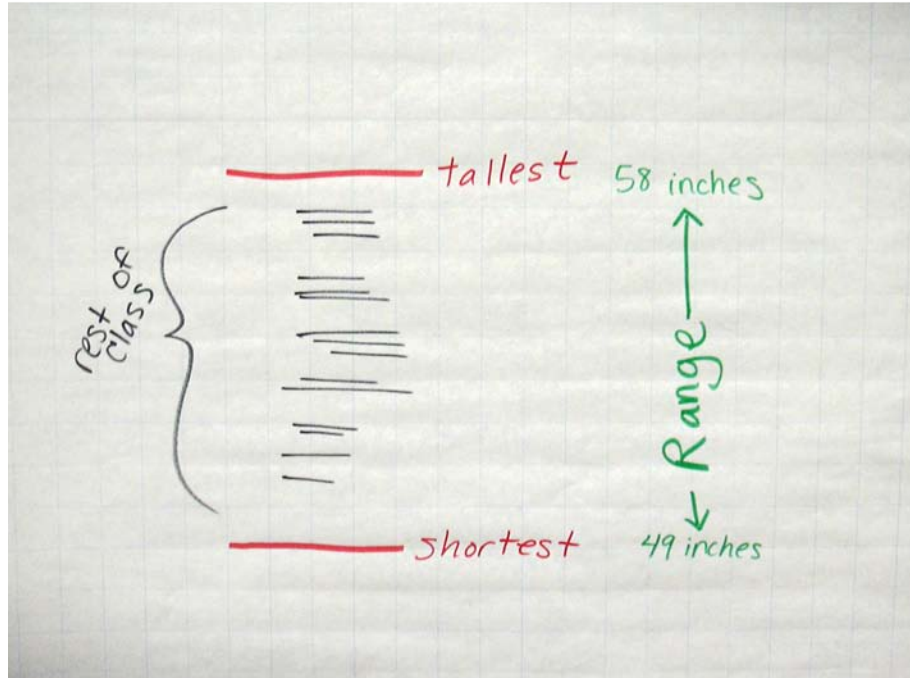 tallest
58 inches
rest of
class
Range
shortest
49 inches